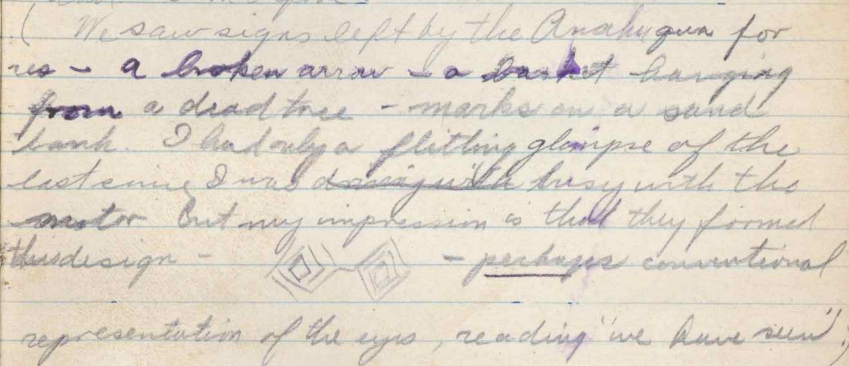 ( We saw signs left by the Anahuqua for
us - a broken arrow - a basket hanging
from a dead tree - marks on a sand
bank. I had only a flitting glimpse of the
last since I was busy with the
motor but my impression is that they formed
this design - - perhaps conventional
representation of the eyes, reading "we have seen".)